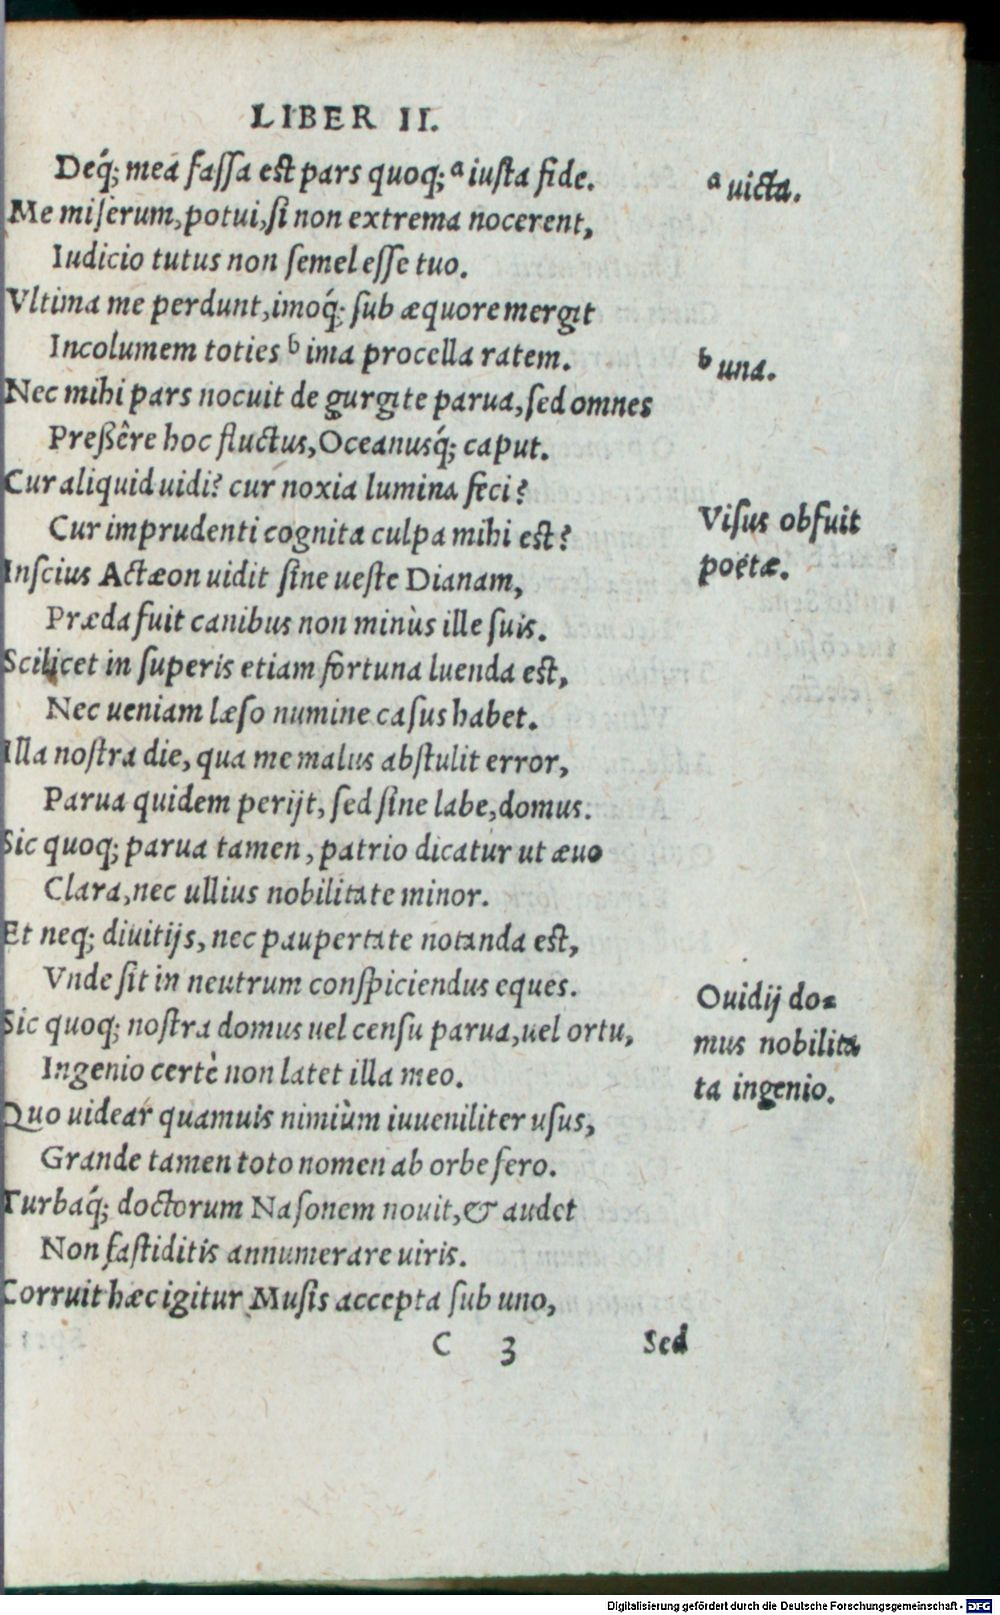 LIBER II.
Deq́; mea fassa est pars quoq; ᵃ iusta fide.
ᵃ uicta.
Me miserum, potui, si non extrema nocerent,
Iudicio tutus non semel esse tuo.
Vltima me perdunt, imoq́; sub æquore mergit
Incolumem toties ᵇ ima procella ratem.
ᵇ una.
Nec mihi pars nocuit de gurgite parua, sed omnes
Preßêre hoc fluctus, Oceanusq́; caput.
Cur aliquid uidi? cur noxia lumina feci?
Cur imprudenti cognita culpa mihi est?
Visus obfuit
poëtæ.
Inscius Actæon uidit sine ueste Dianam,
Præda fuit canibus non minùs ille suis.
Scilicet in superis etiam fortuna luenda est,
Nec ueniam læso numine casus habet.
Illa nostra die, qua me malus abstulit error,
Parua quidem perijt, sed sine labe, domus.
Sic quoq; parua tamen, patrio dicatur ut æuo
Clara, nec ullius nobilitate minor.
Et neq; diuitijs, nec paupertate notanda est,
Vnde sit in neutrum conspiciendus eques.
Ouidij do-
mus nobilita
ta ingenio.
Sic quoq; nostra domus uel censu parua, uel ortu,
Ingenio certè non latet illa meo.
Quo uidear quamuis nimiùm iuueniliter usus,
Grande tamen toto nomen ab orbe fero.
Turbaq́; doctorum Nasonem nouit, & audet
Non fastiditis annumerare uiris.
Corruit hæc igitur Musis accepta sub uno,
C 3 Sed
Digitalisierung gefördert durch die Deutsche Forschungsgemeinschaft - DFG